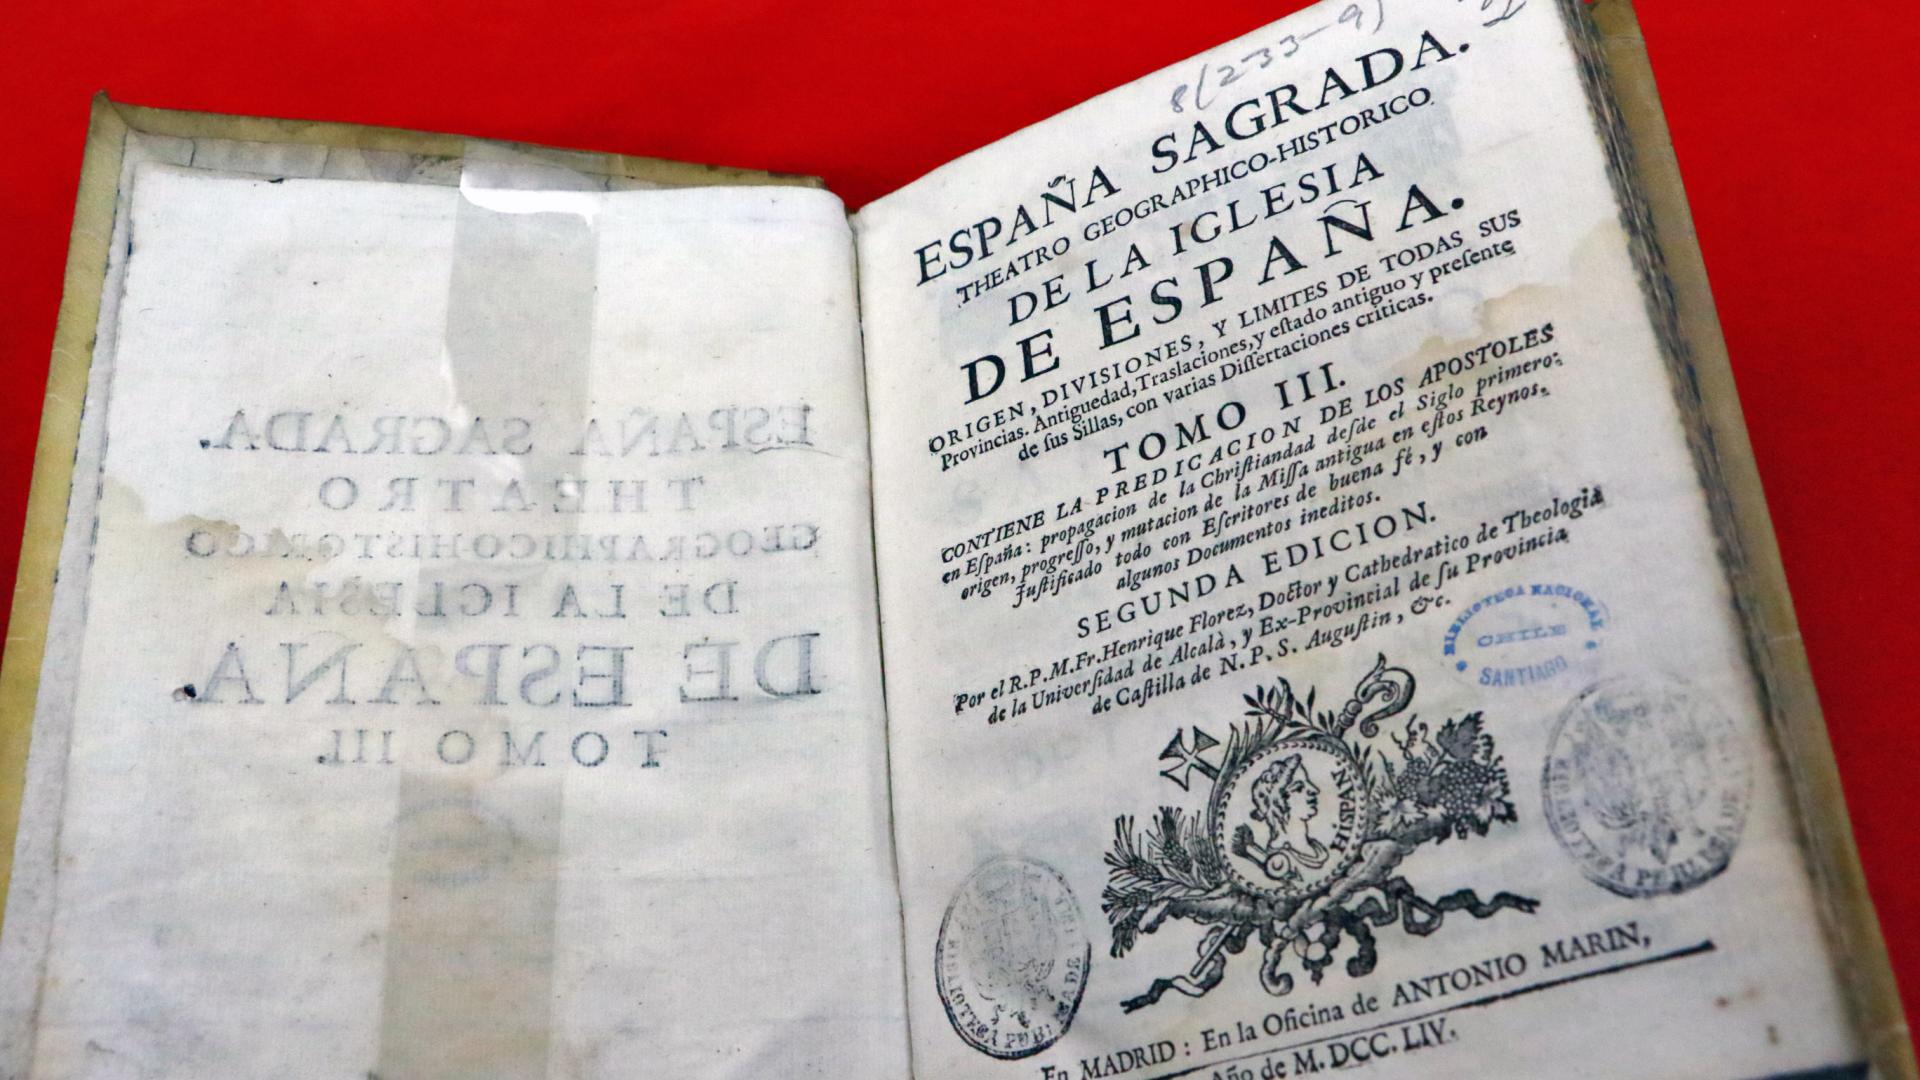 ESPAÑA SAGRADA.
THEATRO
GEOGRAPHICO-HISTORICO
DE LA IGLESIA
DE ESPAÑA.
TOMO III.
8(233-9)
ESPAÑA SAGRADA.
THEATRO GEOGRAPHICO-HISTORICO
DE LA IGLESIA
DE ESPAÑA.
ORIGEN, DIVISIONES, Y LIMITES DE TODAS SUS
Provincias. Antiguedad, Traslaciones, y eſtado antiguo y preſente
de ſus Sillas, con varias Diſſertaciones criticas.
TOMO III.
CONTIENE LA PREDICACION DE LOS APOSTOLES
en Eſpaña: propagacion de la Chriſtiandad deſde el Siglo primero:
origen, progreſſo, y mutacion de la Miſſa antigua en eſtos Reynos.
Juſtificado todo con Eſcritores de buena fé, y con
algunos Documentos ineditos.
SEGUNDA EDICION.
Por el R.P.M.Fr.Henrique Florez, Doctor y Cathedratico de Theologia
de la Univerſidad de Alcalà, y Ex-Provincial de ſu Provincia
de Caſtilla de N. P. S. Auguſtin, &c.
BIBLIOTECA NACIONAL
CHILE
SANTIAGO
HISPAN
BIBLIOTECA PUBLICA DE
BIBLIOTECA PUBLICA DE
En MADRID: En la Oficina de ANTONIO MARIN,
Año de M. DCC. LIV.